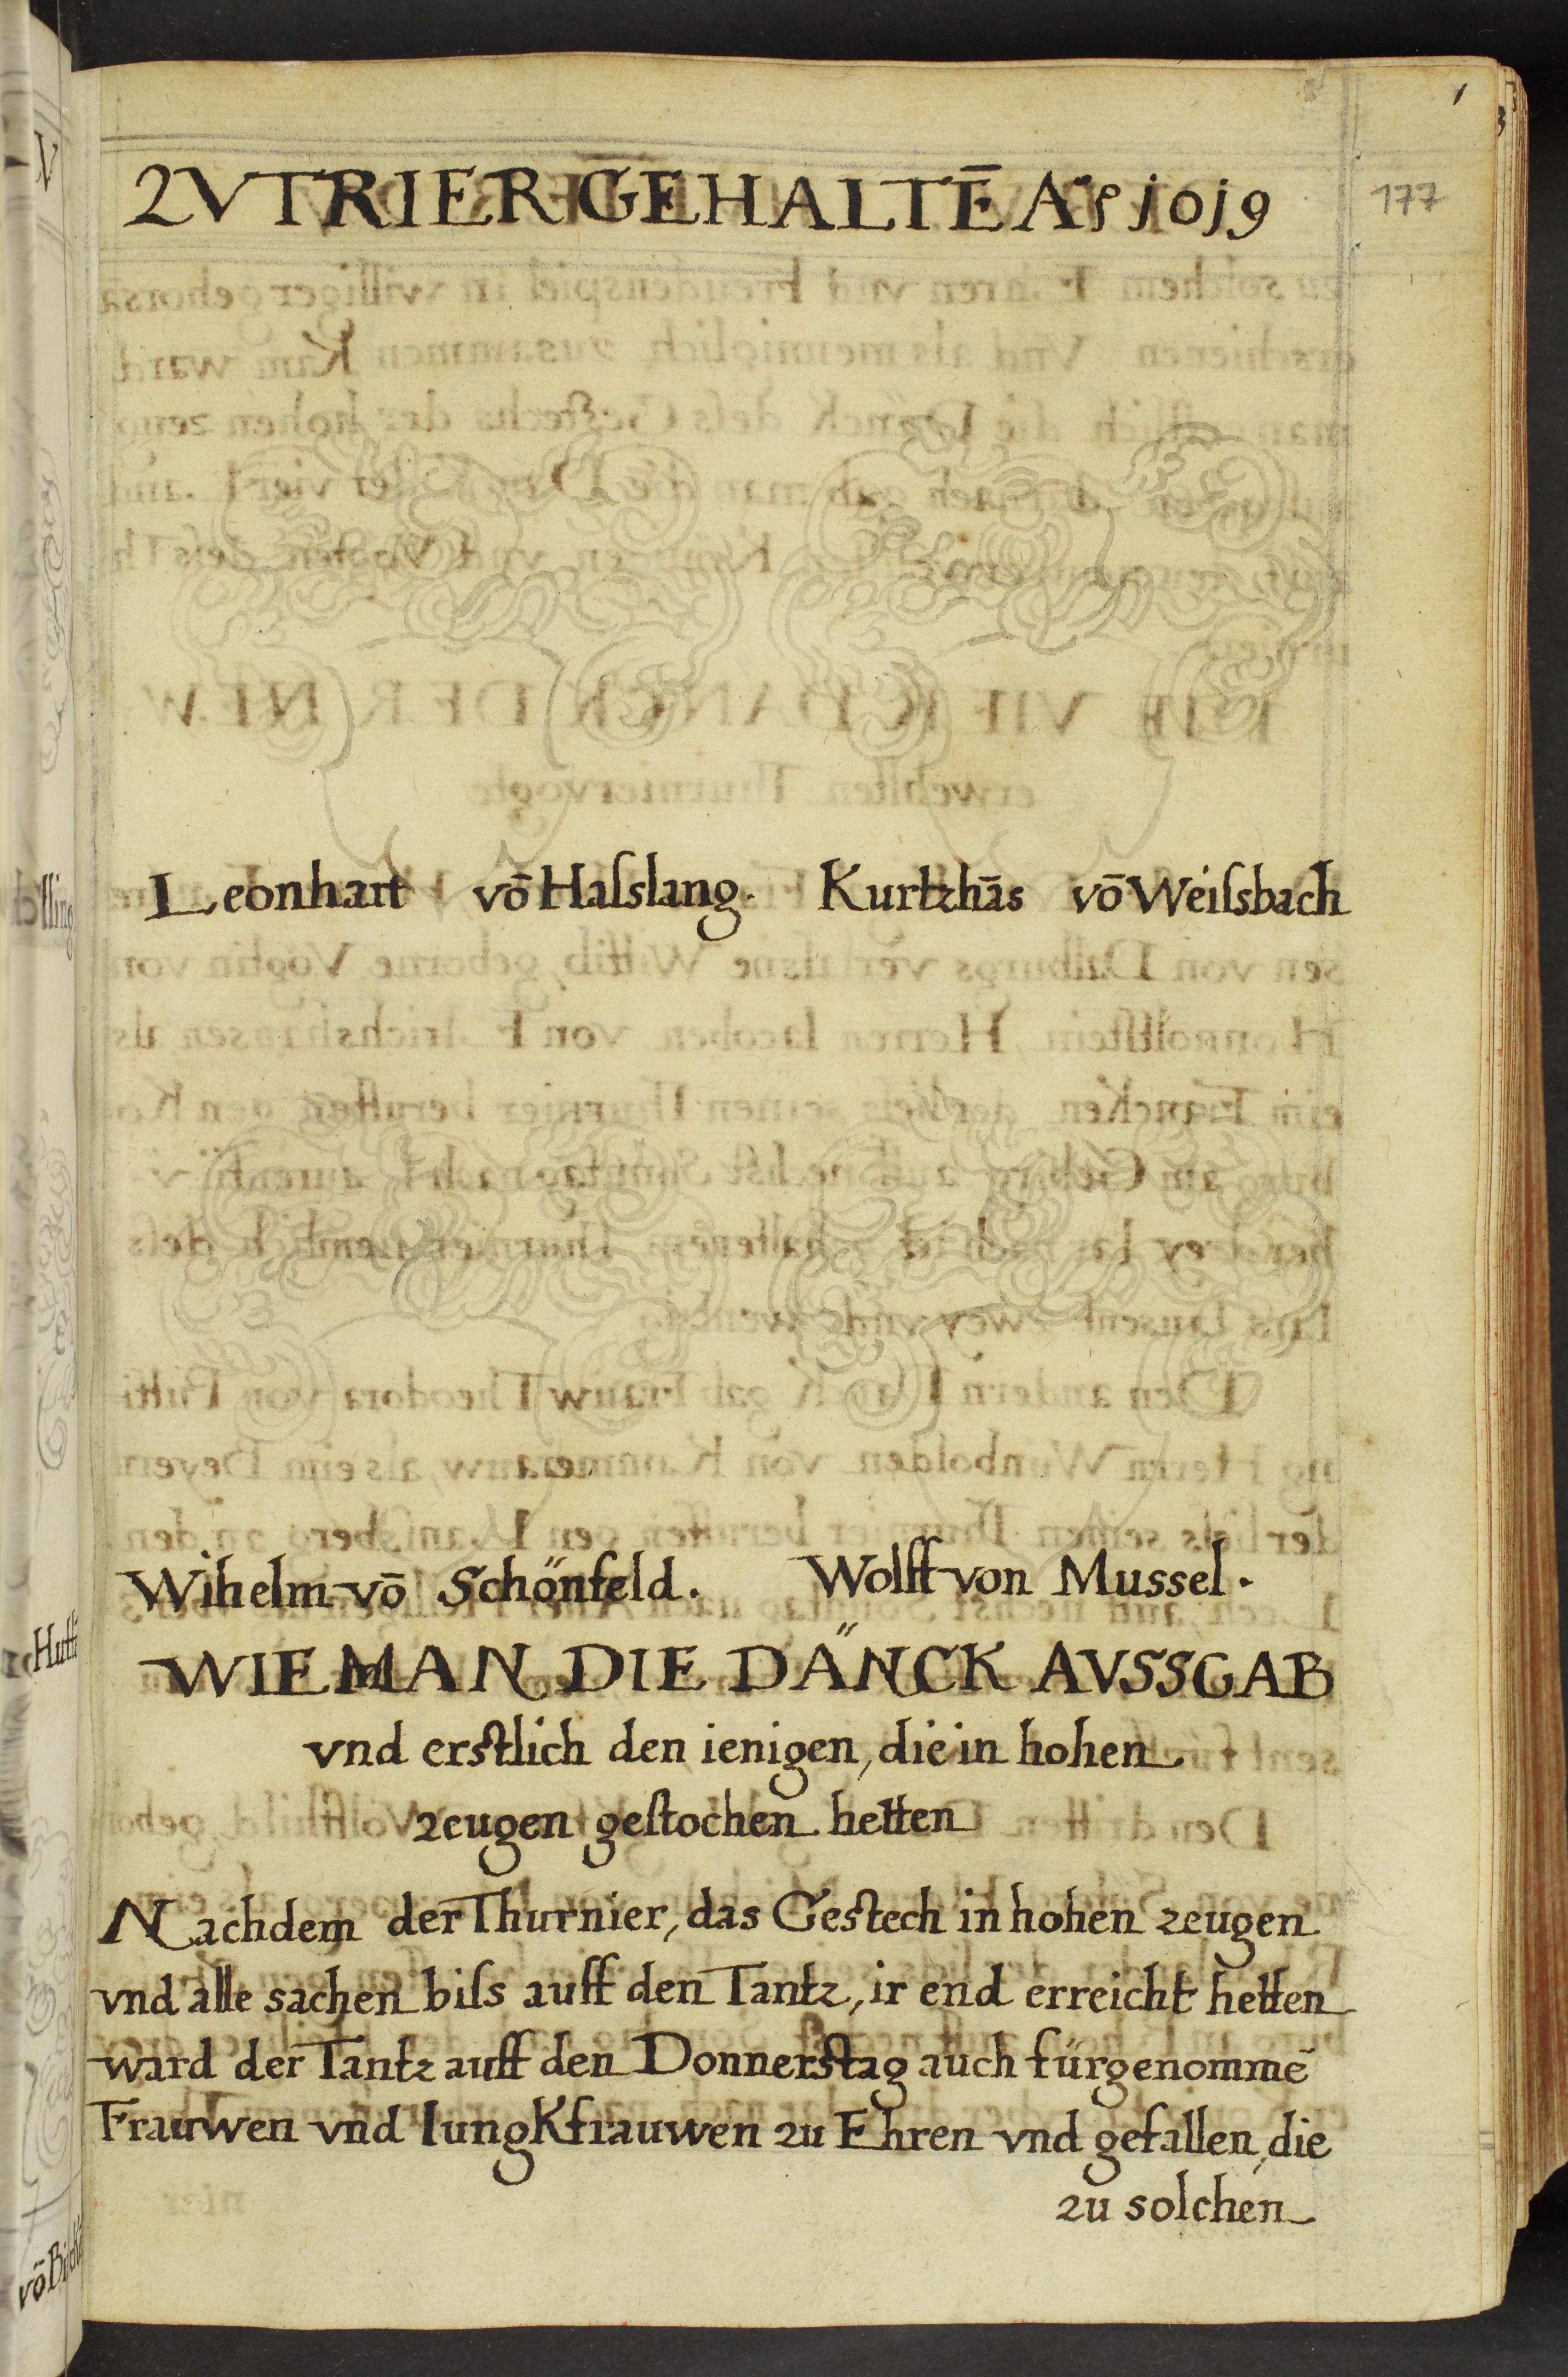 ZVTRIER GEHALTĒ Aō j0j9
177
Leonhart vō Haſslang. Kurtzhās vō Weiſsbach
Wihelm vō Schönfeld. Wolff von Mussel.
WIE MAN DIE DÄNCK AVSSGAB
vnd erſtlich den ienigen, die in hohen
zeugen geſtochen hetten
Nachdem der Thurnier, das Geſtech in hohen zeugen
vnd alle sachen biſs auff den Tantz, ir end erreicht hetten
ward der Tantz auff den Donnerſtag auch fürgenommē
Frauwen vnd IungKfrauwen zu Ehren vnd gefallen, die
zu solchen